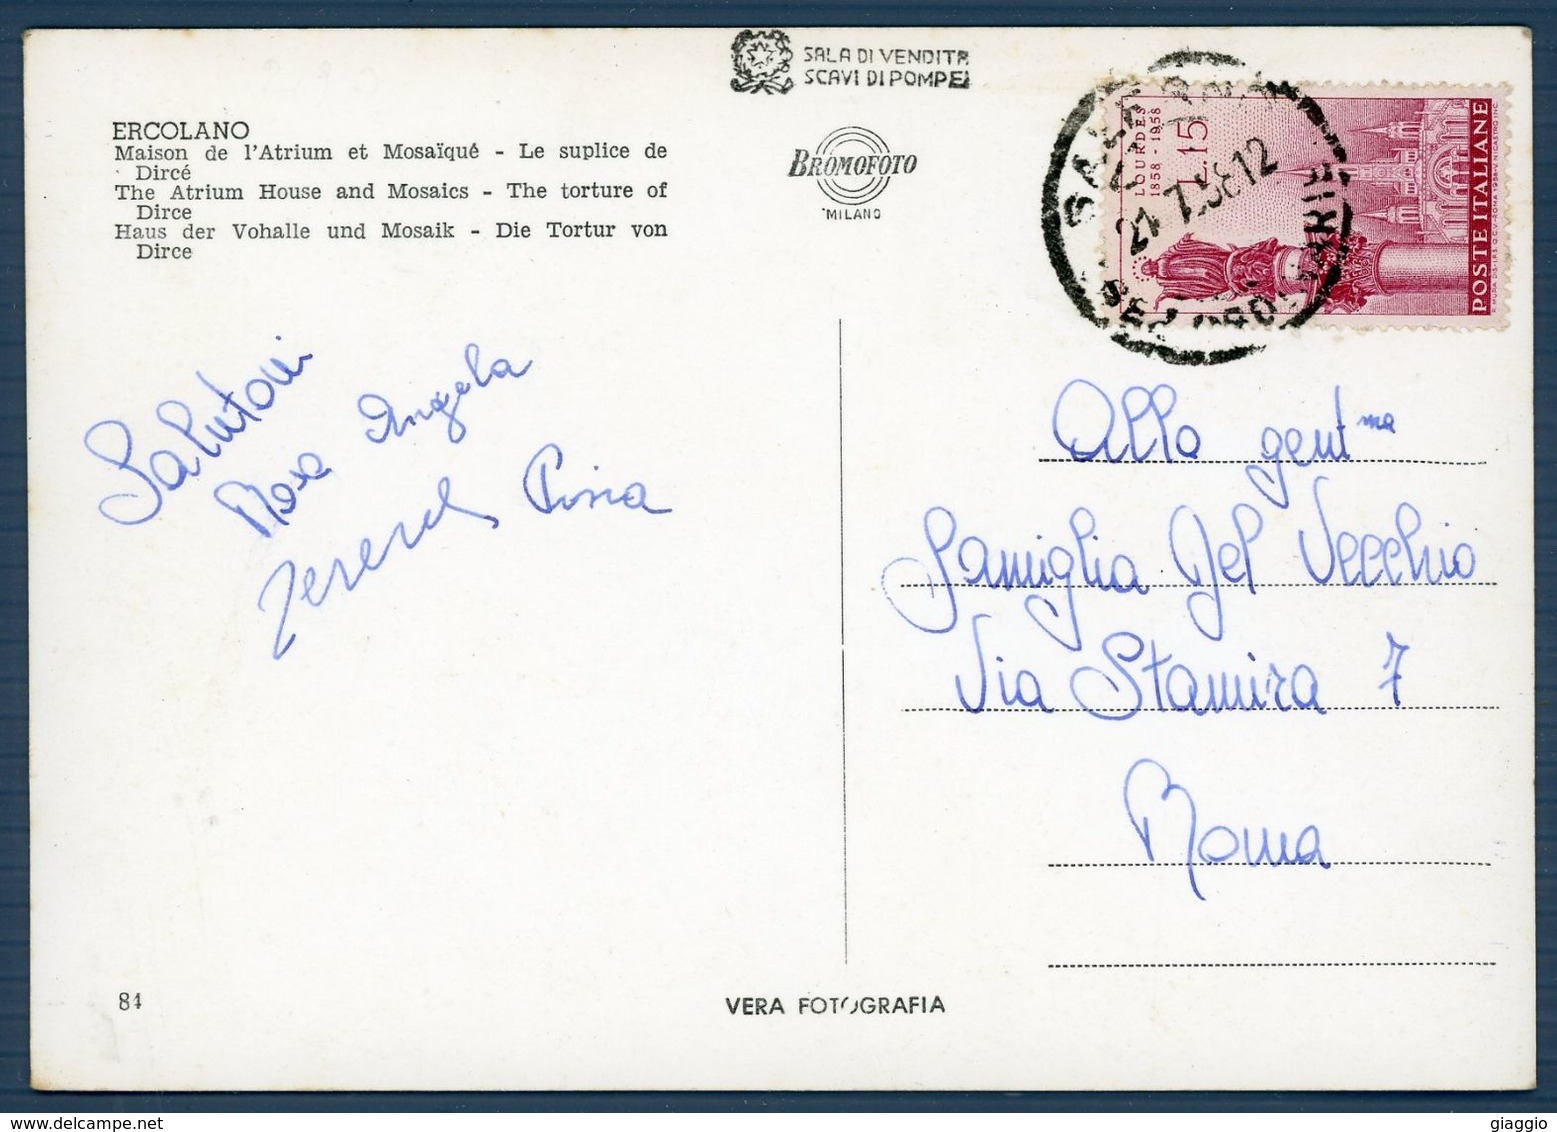 SALA DI VENDITA
SCAVI DI POMPEI
ERCOLANO
Maison de l'Atrium et Mosaïqué - Le suplice de
Dircé
The Atrium House and Mosaics - The torture of
Dirce
Haus der Vohalle und Mosaik - Die Tortur von
Dirce
BROMOFOTO
MILANO
LOURDES
1858 - 1958
L.15
POSTE ITALIANE
7.58 12
Salutoni
Rosa Angela
Pina
Alla gent.ma
Famiglia Del Vecchio
Via Stamira 7
Roma
84
VERA FOTOGRAFIA
delcampe.net
giaggio